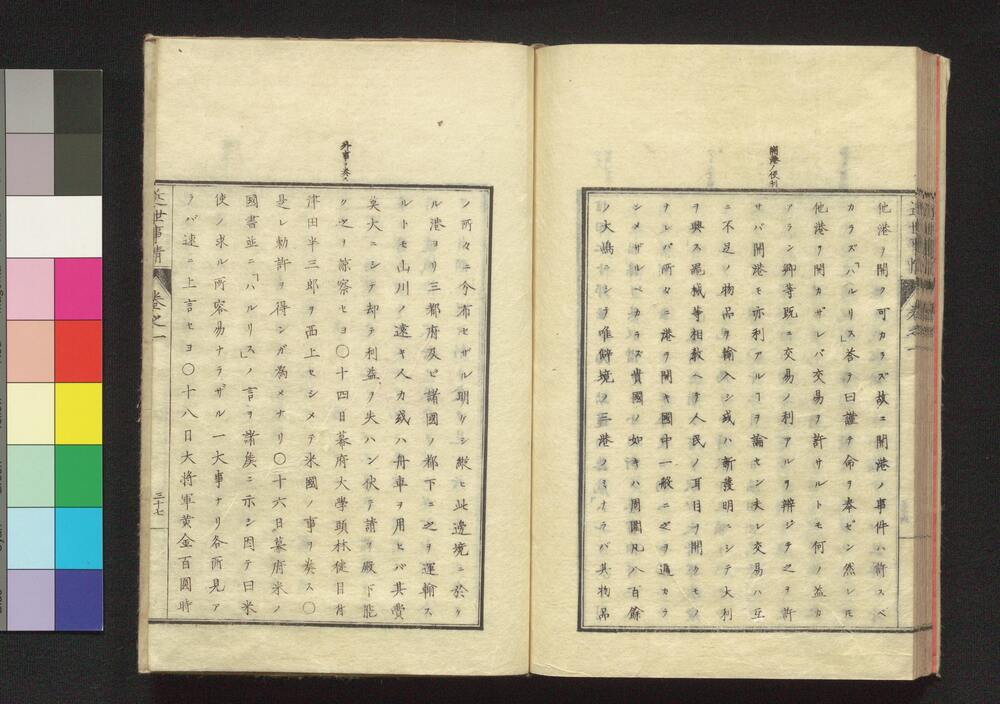 開港ノ便利
他港ヲ開ク可カラズ故ニ開港ノ事件ハ許スベ
カラズ「ハルリス」答テ曰謹テ命ヲ奉ゼン然レ𪜈
他港ヲ開カザレバ交易ヲ許サルトモ何ノ益カ
アラン卿等既ニ交易ノ利アルヲ辨ジテ之ヲ許
サバ開港モ亦利アルヿヲ論セン夫レ交易ハ互
ニ不足ノ物品ヲ輸入シ或ハ新
ヲ興ス
テレバ所々ニ港ヲ開キ國中一般ニ之ヲ通
シメザルベカラズ貴國ノ如キハ周圍凡八百餘
ノ大嶋ニシテ唯僻境ノ三港ノミナラバ其物品
近世事情
卷之一
外事ヲ奏ス
ノ所々ニ分布セザル明ケシ縱ヒ此邊境ニ於ケ
ル港ヨリ三都府及ビ諸國ノ都下ニ之ヲ運輸ス
ルトモ山川ノ遠キ人力或ハ舟車ヲ用ヒバ其費
大ニシテ却テ利益ヲ失ハン伏テ請フ殿下能
ク之ヲ諒察セヨ〇十四日幕府大學頭林徒目付
津田半三郎ヲ西上セシメテ米國ノ事ヲ奏ス〇
是レ勅許ヲ得ンガ爲メナリ〇二十六日幕府米ノ
國書並ニ「ハルリス」ノ言ヲ諸矦ニ示シ因テ曰米
使ノ求ル所容易ナラザル一大事ナリ各所見ア
ラバ速ニ上言セヨ〇十八日大將軍黄金百圓時
近世事情
卷之一
三十七